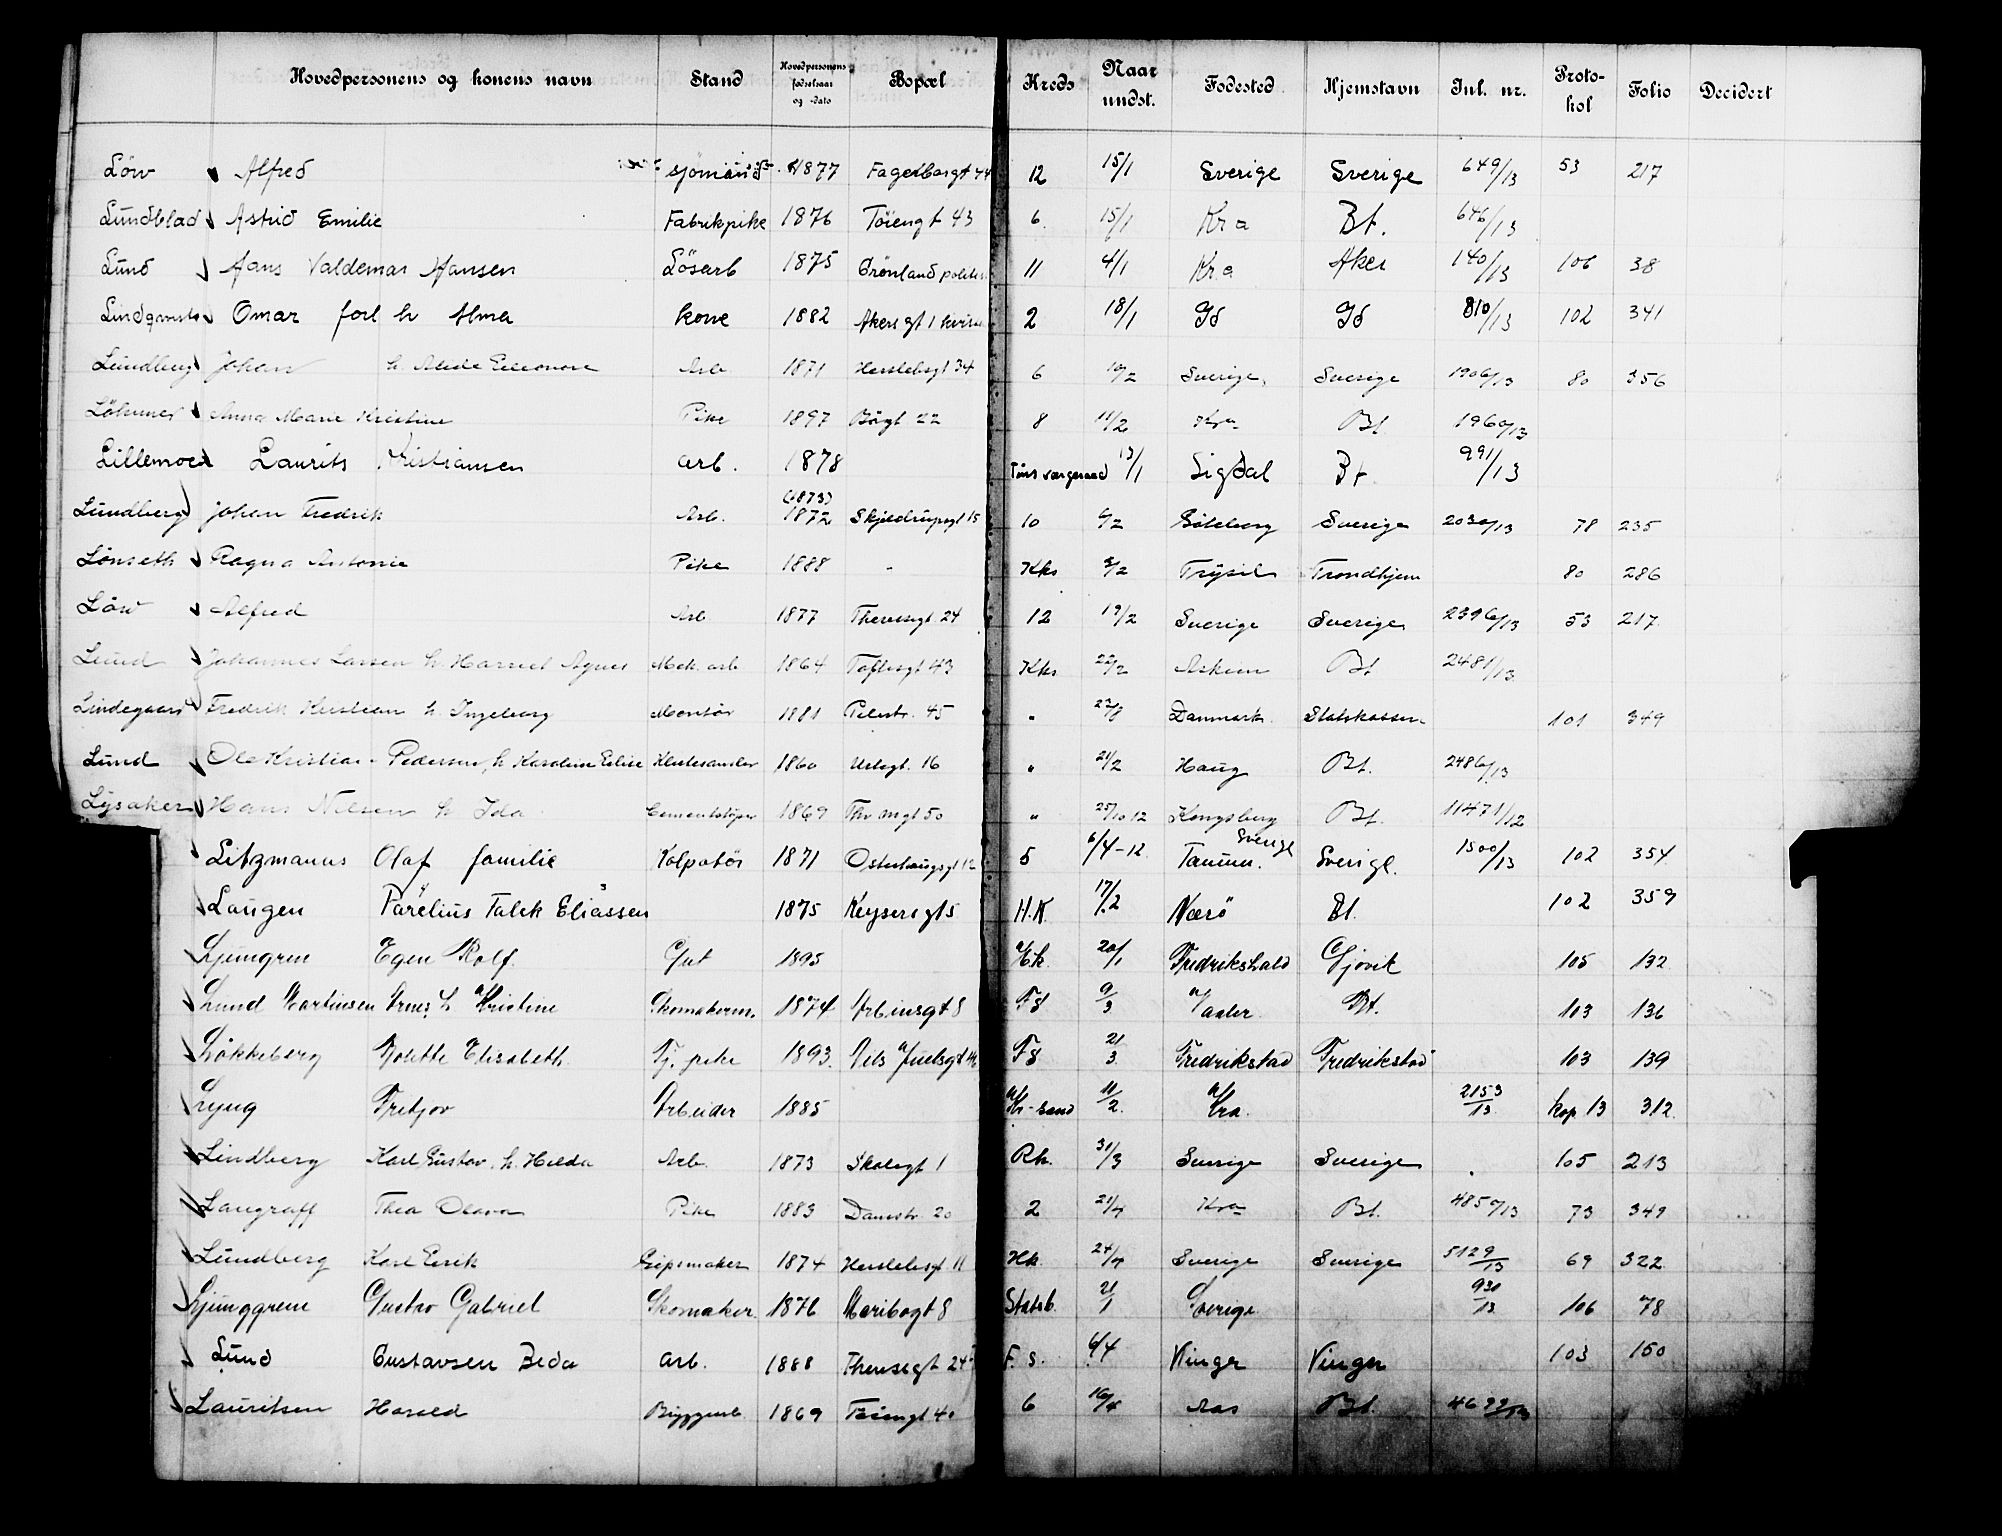 Hovedpersonens og konens navn Stand Hovedpersonens fødselsaar og -dato Bopæl Kreds Naar undst. Fødested Hjemstavn Jnl. nr. Proto-kol Folio Decidert
Löw Alfred sjömand 1877 Fagerborggt 44 12 15/1 Sverige Sverige 649/13 53 217
Lundblad Astrid Emilie Fabrikpike 1876 Töiengt 43 6 15/1 Kra Bt. 646/13
Lund Hans Valdemar Hansen Lösarb 1875 Grönland politi 11 4/1 Kra Aker 140/13 106 38
Omar forl h Alma kone 1882 Akersgt 1 2 18/1 Id Id 810/13 102 341
Lundberg Johan h. Alide Eleonore Arb 1871 Herslebsgt 34 6 10/2 Sverige Sverige 1906/13 80 356
Anna Marie Kristine Pike 1897 Bögt 22 8 11/2 Kra Bt 1960/13
Lillemoen Laurits Kristiansen arb. 1878 Töns værgeraad 13/1 Sigdal Bt. 991/13
Lundberg Johan Fredrik Arb. (1873) 1872 Skjeldrupsgt 15 10 6/2 Göteborg Sverige 2030/13 78 235
Lönseth Ragna Antonie Pike 1888 - Kks 8/2 Trysil Trondhjem 80 286
Löw Alfred Arb 1877 Theresegt 24 12 19/2 Sverige Sverige 2396/13 53 217
Lund Johannes Larsen h. Harriet Agnes Mek. arb 1864 Toftesgt 43 Kks 22/2 Askim Bt 2481/13
Lindegaard Fredrik Kristian h. Ingeborg Montör 1881 Pilestr. 45 " 22/8 Danmark Statskassen 101 349
Lund Ole Kristian Pedersen, h Karoline Elise Klutesamler 1860 Urtegt. 16 " 21/2 Haug Bt. 2486/13
Lysaker Hans Nilsen h Ida Cementstöper 1869 Thv Mgt 50 " 25/10 12 Kongsberg Bt. 11471/12
Litzmanns Olaf familie Kolpotör 1871 Osterhaugsgt 12 5 6/4-12 Tanum. Sverige Sverige. 1500/13 102 354
Laugen Parelius Talek Eliassen 1875 Keysersgt 5 H.K. 17/2 Nærö Bt. 102 359
Ljungren Egen Rolf. Gut 1895 Ek. 20/1 Fredrikshald Gjövik 105 132
Lund Martinsen h Kristine Skomakerm. 1874 Arbinsgt 8 FS 9/3 Bt. 103 136
Løkkeberg Bolette Elisabeth Tj. pike 1893. Nels Juelsgt FS 21/3 Fredrikstad Fredrikstad 103 139
Ljug Fretjov Arbeider 1885 Kr-sand 11/2. Kra. 2153/13 kop 13 312
Lindberg Karl Gustav. h. Hilda Arb. 1873 Skolegt 1 Rk. 31/3 Sverige Sverige . 105 213
Langraff Thea Olava Pike 1883 Damstr 20 2 21/4 Kra Bt. 4850/13 73 349
Lundberg Karl Eirik Gipsmaker 1874 Herslebsgt 11 Hk. 24/4 Sverige Sverige 5129/13 69 322
Ljunggren Gustav Gabriel Skomaker. 1876 Maribogt 8 Statsb. 21/1 Sverige 930/13 106 78
Lund Gustavsen Beda arb. 1888 Theresegt 24 F. S. 6/4 Vinger Vinger 103 150
Lauritsen Harald Byggarb 1869 Töiengt 40 6 16/4 Aas Bt. 4699/13